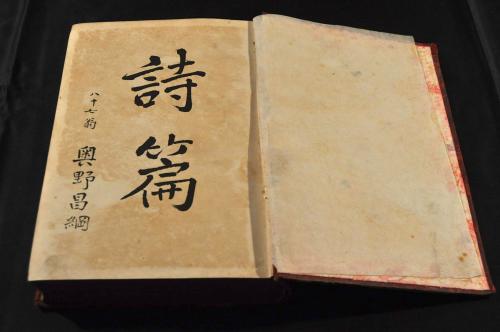 詩篇
八十七翁
奥野昌綱